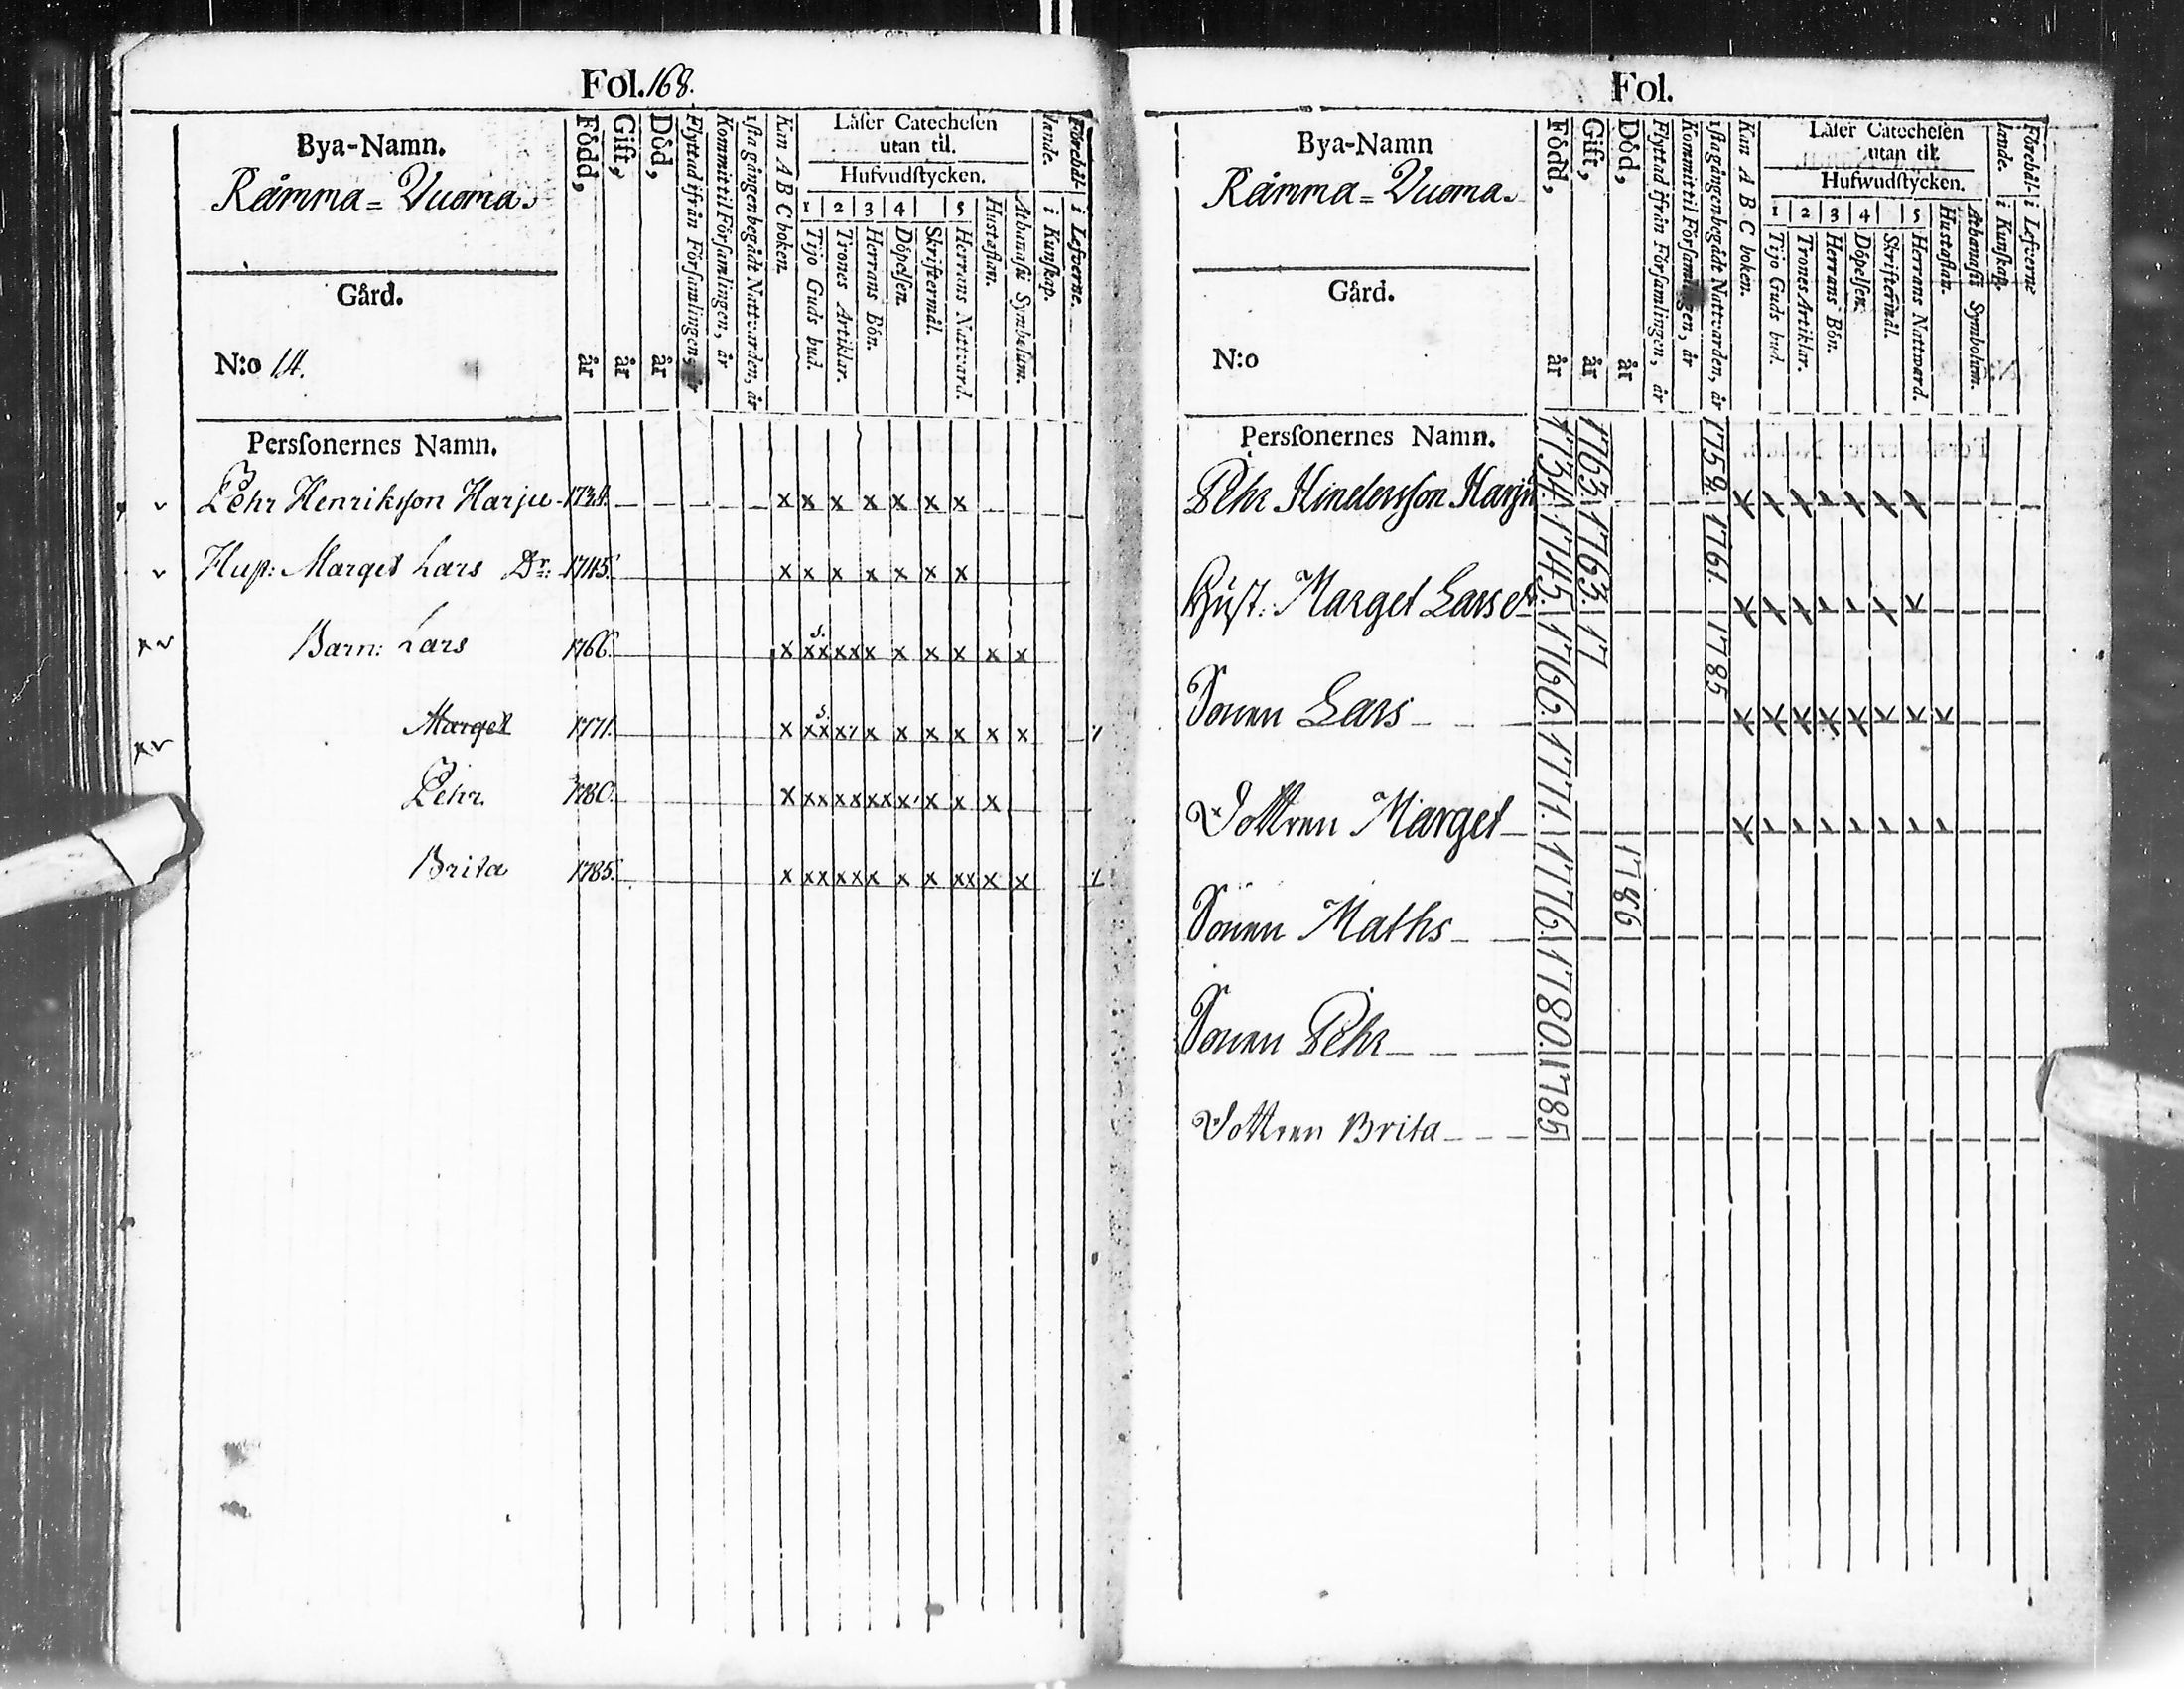 Fol. 168.
Bya-Namn.
Rämma = Vuoma.
Gård.
N:o 14.
Född, år
Gift, år
Död, år
Flyttad ifrån Förſamlingen, år
Kommit til Förſamlingen, år
1ſta gången begådt Nattvarden, år
Kan A B C boken.
Läſer Catecheſen
utan til.
Hufvudſtycken.
1 2 3 4 5
Tijo Guds bud.
Trones Artiklar.
Herrans Bön.
Döpelſen.
Skriftermål.
Herrans Nattvard.
Huſtaflan.
Athanaſii Symbolum.
Förehål-
lande.
i Kunſkap.
i Lefverne.
Perſonernes Namn.
Pehr Henriksſon Harju 1734. x x x x x x x
Huſt: Marget Lars Dr: 1745. x x x x x x x
Barn: Lars 1766. x xx xx x x x x x x
Marget 1771. x xx x x x x x x x
Pehr 1780. x xx xx xx x x x x
Brita 1785. x xx xx x x x xx x x
Fol.
Bya-Namn
Rämma = Vuoma.
Gård.
N:o
Född, år
Gift, år
Död, år
Flyttad ifrån Förſamlingen, år
Kommit til Förſamlingen, år
1ſta gången begådt Nattvarden, år
Kan A B C boken.
Läſer Catecheſen
utan til.
Hufwudſtycken.
1 2 3 4 5
Tijo Guds bud.
Trones Artiklar.
Herrans Bön.
Döpelſen.
Skriftermål.
Herrans Nattward.
Huſtaflan.
Athanaſii Symbolum.
Förehål-
lande.
i Kunſkap.
i Lefverne
Perſonernes Namn.
Pehr Hindersſon Harju 1734. 1763. 1759.
Huſt: Marget Larsdr 1745. 1763. 1761.
Sonen Lars 1766. 17 1785
Dottren Marget 1771.
Sonen Maths 1776. 1786
Sonen Pehr 1780.
Dottren Brita 1785